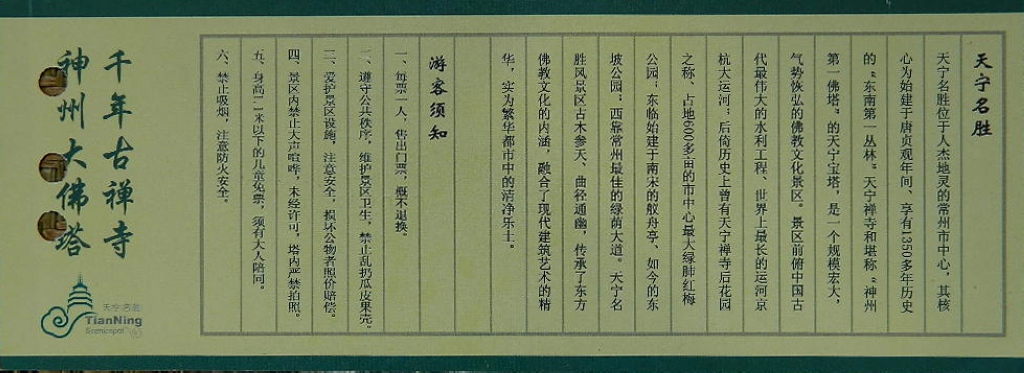 天宁名胜
天宁名胜位于人杰地灵的常州市中心，其核
心为始建于唐贞观年间、享有1350多年历史
的“东南第一丛林”天宁禅寺和堪称“神州
第一佛塔”的天宁宝塔，是一个规模宏大，
气势恢弘的佛教文化景区。景区前俯中国古
代最伟大的水利工程、世界上最长的运河京
杭大运河；后倚历史上曾有天宁禅寺后花园
之称、占地600多亩的市中心最大绿肺红梅
公园；东临始建于南宋的舣舟亭、如今的东
坡公园；西靠常州最佳的绿荫大道。天宁名
胜风景区古木参天、曲径通幽，传承了东方
佛教文化的内涵，融合了现代建筑艺术的精
华，实为繁华都市中的清净乐土。
游客须知
一、每票一人，售出门票，概不退换。
二、遵守公共秩序，维护景区卫生，禁止乱扔瓜皮果壳。
三、爱护景区设施，注意安全，损坏公物者照价赔偿。
四、景区内禁止大声喧哗，未经许可，塔内严禁拍照。
五、身高1.1米以下的儿童免票，须有大人陪同。
六、禁止吸烟，注意防火安全。
千年古禅寺
神州大佛塔
天宁·名胜
TianNing
Scenicspot